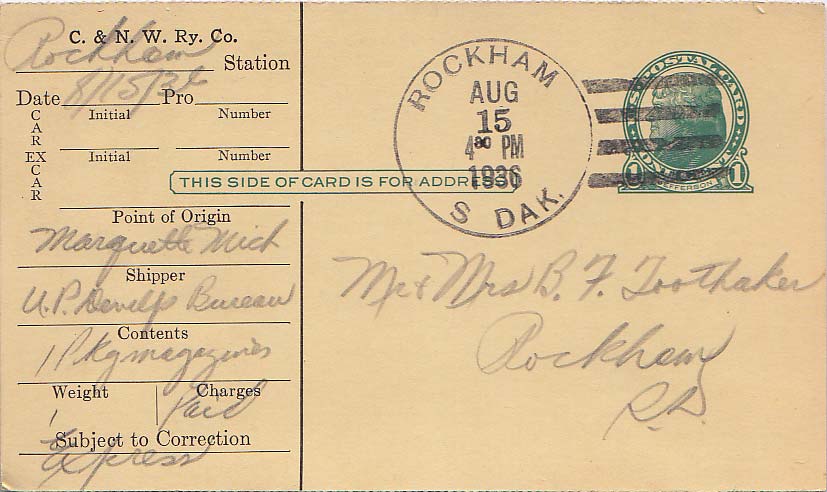 C. & N. W. Ry. Co.
Rockham Station
Date 8/15/36 Pro
CAR Initial Number
EX CAR Initial Number
THIS SIDE OF CARD IS FOR ADDRESS
Point of Origin
Marquette Mich
Shipper
U.P. Develp Bureau
Contents
1 Pkg magazines
Weight Charges
1 Paid
Subject to Correction
Express
ROCKHAM
AUG
15
4 30 PM
1936
S DAK.
U.S. POSTAL CARD
ONE CENT
1 JEFFERSON 1
Mr & Mrs B. F. Toothaker
Rockham
S.D.